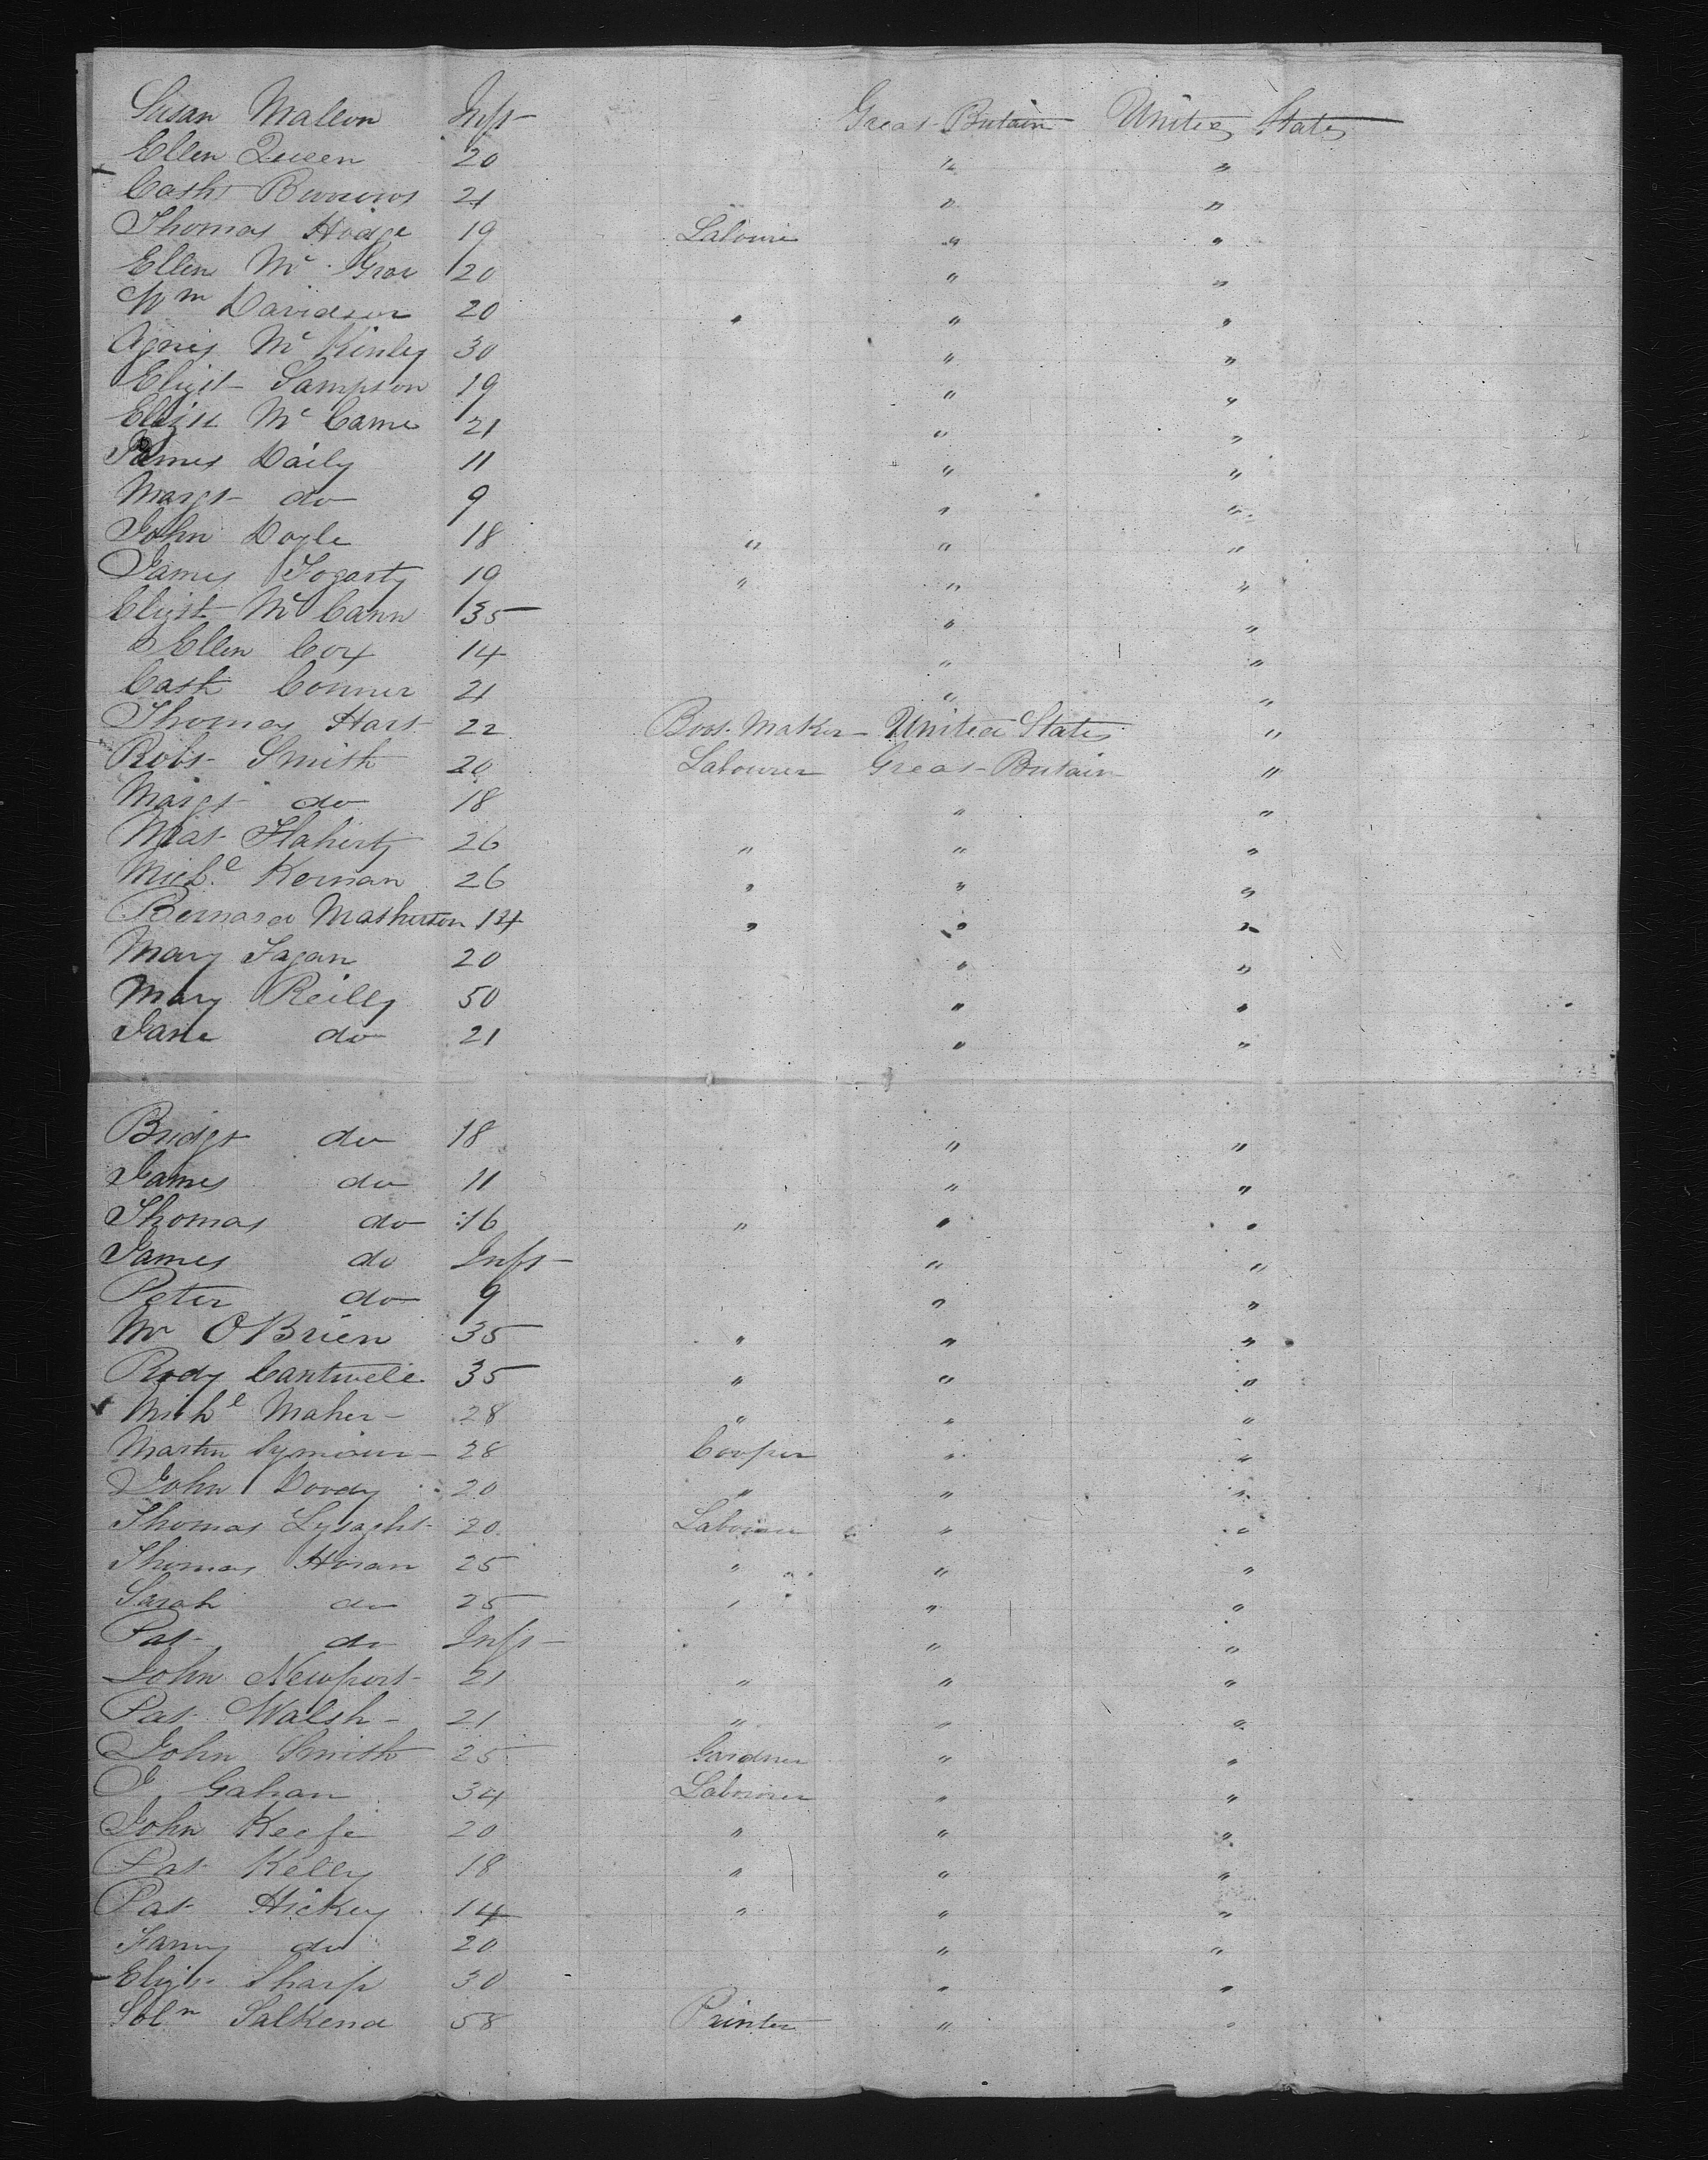 Susan Mallon Inft Great Britain United States
Ellen Queen 20 " "
Cath Burrows 21 " "
Thomas Hodge 19 Labourer " "
Ellen Mc Grav 20 " "
Wm Davidson 20 " " "
Agnes McKinley 30 " "
Elizt Sampson 19 " "
Elizt Mc Came 21 " "
James Daily 11 " "
Margt do 9 " "
John Doyle 18 " " "
James Fogarty 19 " " "
Elizt McCann 35 " "
Ellen Cox 14 " "
Cath Conner 21 " "
Thomas Hart 22 Boot Maker United States "
Robt Smith 20 Labourer Great Britain "
Margt do 18 " "
Mat Flaherty 26 " " "
Michl Kernan 26 " " "
Bernard Matherson 14 " " "
Mary Fagan 20 " "
Mary Reilly 50 " "
Jane do 21 " "
Bridgt do 18 " "
James do 11 " "
Thomas do 16 " " "
James do Inft " "
Peter do 9 " "
M OBrien 35 " " "
Rody Cantwell 35 " " "
Michl Maher 28 " " "
Martin Cymour 28 Cooper " "
John Doody 20 " " "
Thomas Lysaght 20 Labourer " "
Thomas Horan 25 " " "
Sarah do 25 " " "
Pat do Inft " "
John Newport 21 " " "
Pat Walsh 21 " " "
John Smith 25 Gardner " "
J Gahan 34 Labourer " "
John Keefe 20 " " "
Pat Kelly 18 " " "
Pat Hickey 14 " " "
Fanny do 20 " "
Elizt Sharp 30 " "
Soln Salkend 58 Printer " "